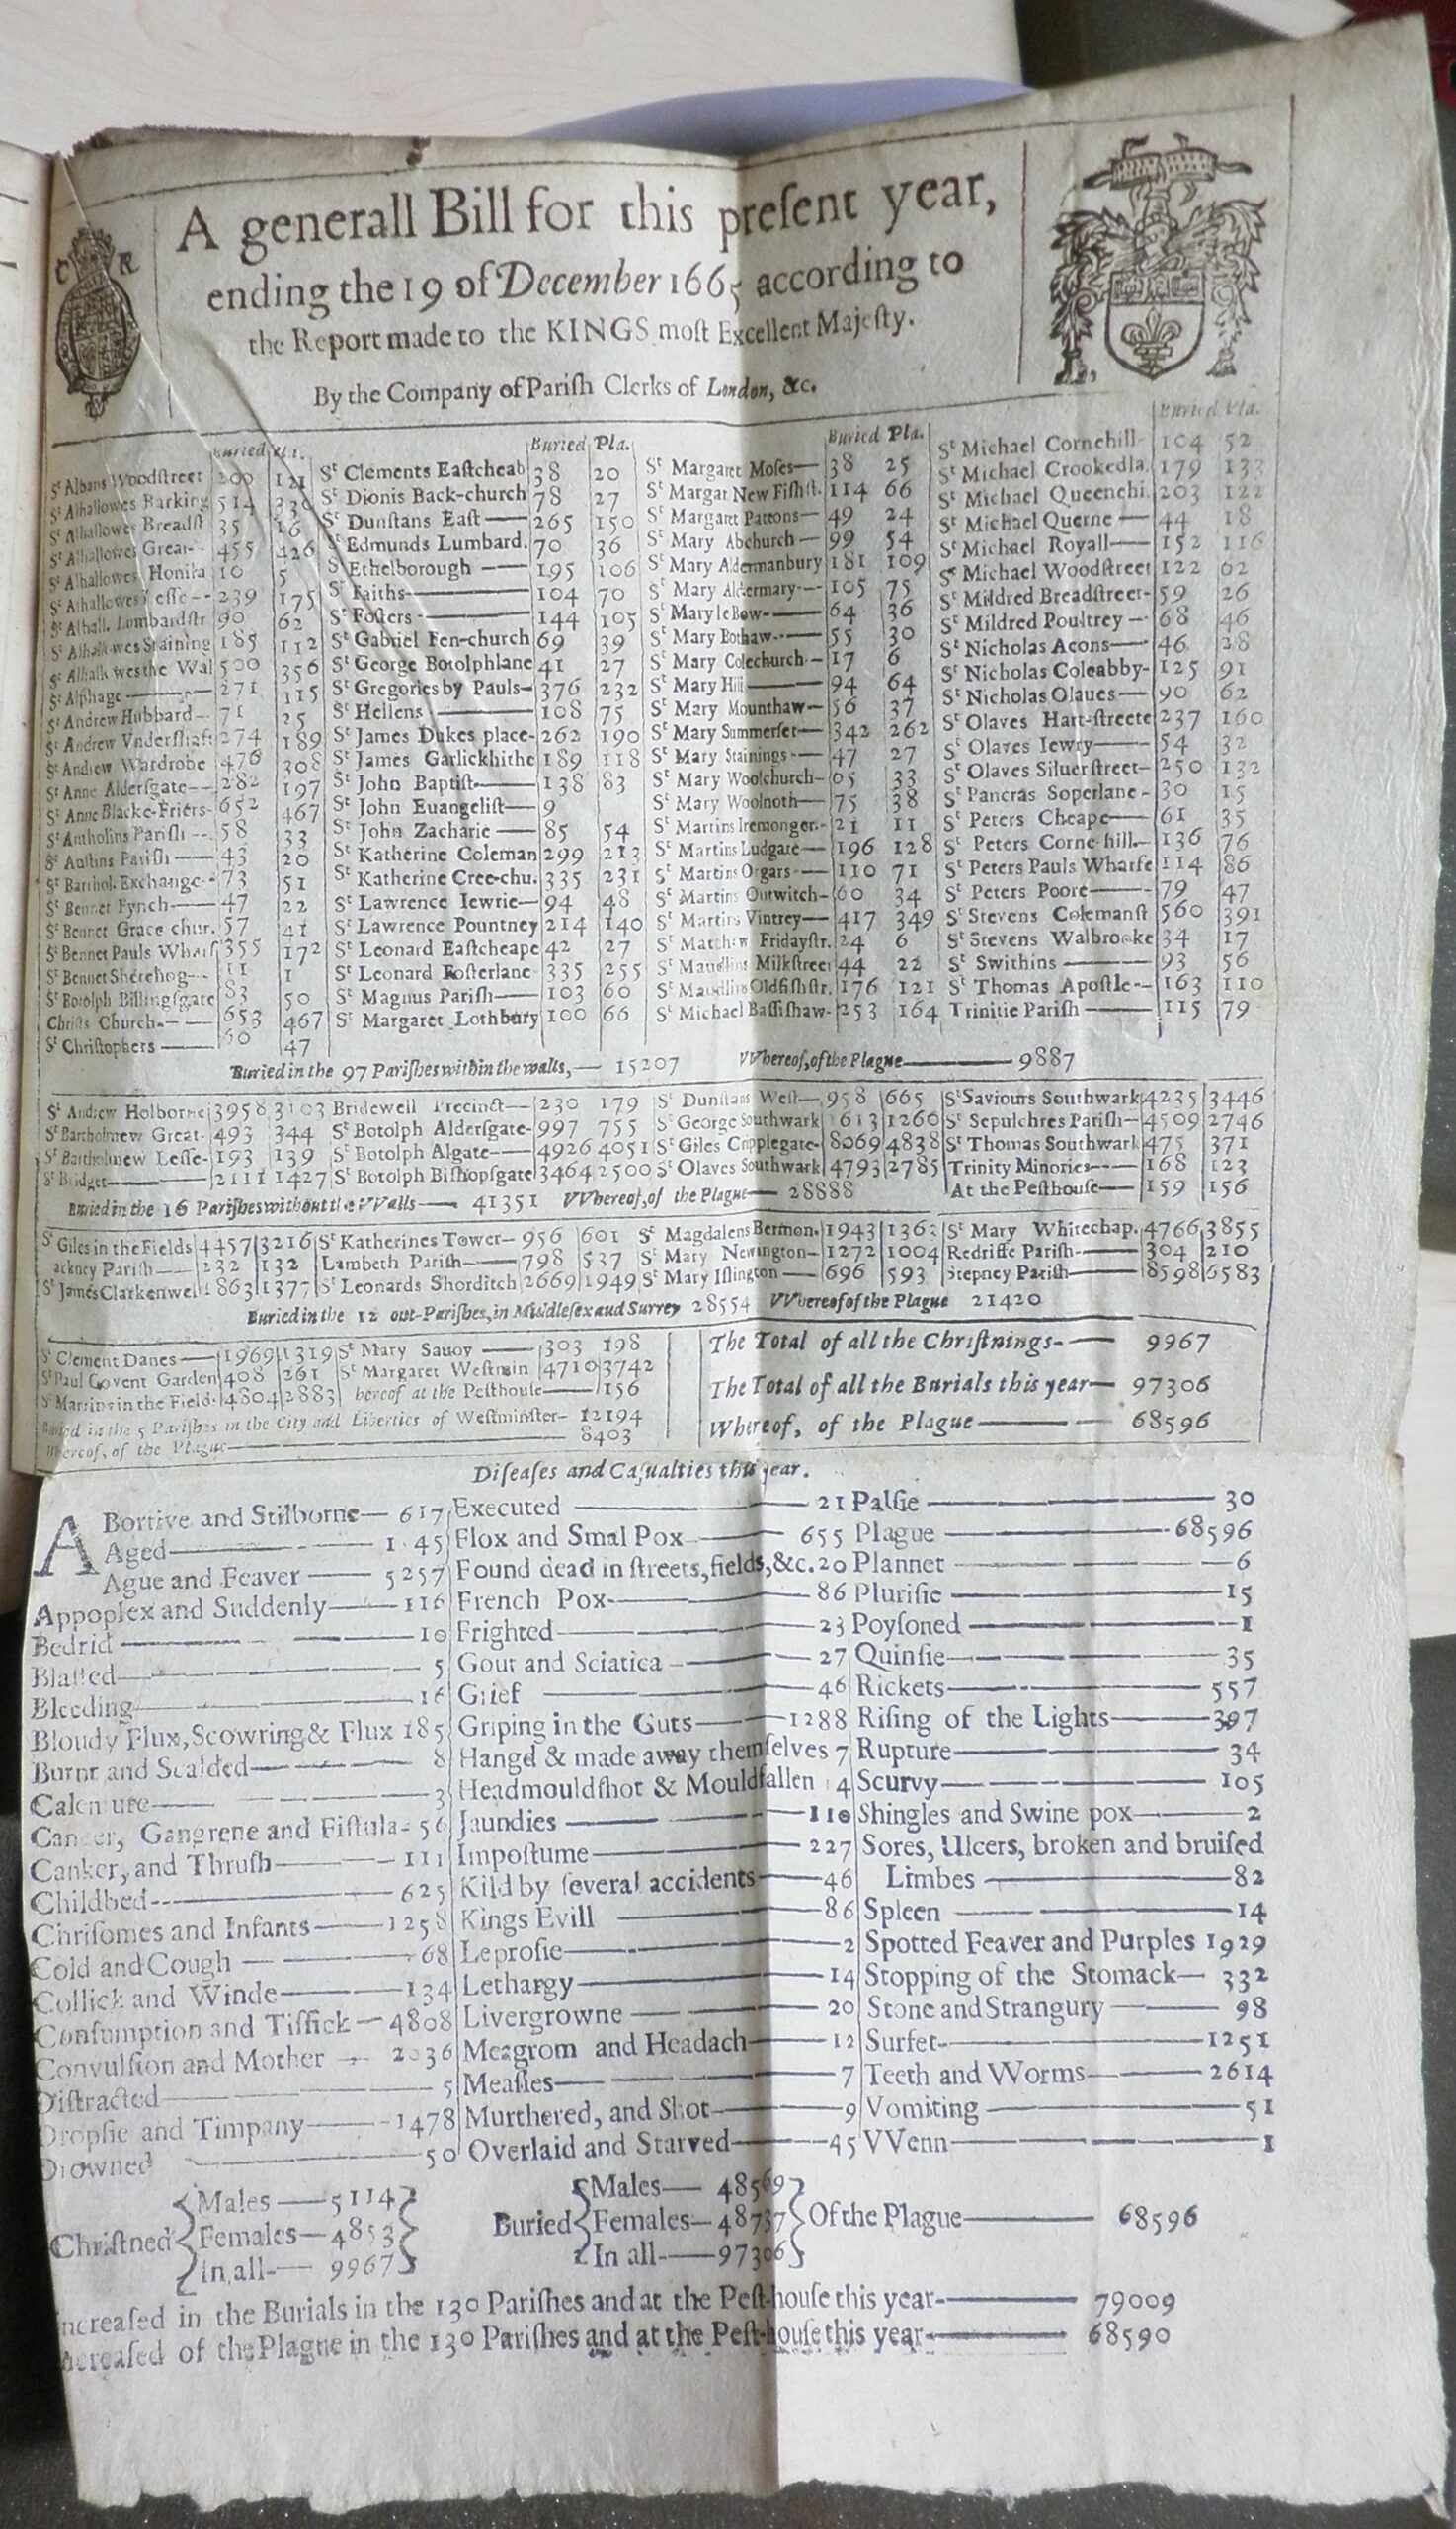 C R
A generall Bill for this preſent year,
ending the 19 of December 1665 according to
the Report made to the KINGS moſt Excellent Majeſty.
By the Company of Pariſh Clerks of London, &c.
Buried Pla.
St Albans Woodſtreet 200 121
St Alhallowes Barking 514 330
St Alhallowes Breadſt 35 16
St Alhallowes Great 455 426
St Alhallowes Honila 10 5
St Alhallowes Leſſe 239 175
St Alhall. Lumbardſtr 90 62
St Alhallowes Staining 185 112
St Alhallowes the Wal 500 356
St Alphage 271 115
St Andrew Hubbard 71 25
St Andrew Vnderſhaft 274 189
St Andrew Wardrobe 476 308
St Anne Alderſgate 282 197
St Anne Blacke-Friers 652 467
St Antholins Pariſh 58 33
St Auſtins Pariſh 43 20
St Barthol. Exchange 73 51
St Bennet Fynch 47 22
St Bennet Grace chur. 57 41
St Bennet Pauls Wharf 355 172
St Bennet Sherehog 11 1
St Botolph Billingſgate 83 50
Chriſts Church 653 467
St Chriſtophers 60 47
Buried Pla.
St Clements Eaſtcheab 38 20
St Dionis Back-church 78 27
St Dunſtans Eaſt 265 150
St Edmunds Lumbard. 70 36
St Ethelborough 195 106
St Faiths 104 70
St Foſters 144 105
St Gabriel Fen-church 69 39
St George Botolphlane 41 27
St Gregories by Pauls 376 232
St Hellens 108 75
St James Dukes place 262 190
St James Garlickhithe 189 118
St John Baptiſt 138 83
St John Euangeliſt 9
St John Zacharie 85 54
St Katherine Coleman 299 213
St Katherine Cree-chu. 335 231
St Lawrence Iewrie 94 48
St Lawrence Pountney 214 140
St Leonard Eaſtcheape 42 27
St Leonard Foſterlane 335 255
St Magnus Pariſh 103 60
St Margaret Lothbury 100 66
Buried Pla.
St Margaret Moſes 38 25
St Margar. New Fiſhſt. 114 66
St Margaret Pattons 49 24
St Mary Abchurch 99 54
St Mary Aldermanbury 181 109
St Mary Aldermary 105 75
St Mary le Bow 64 36
St Mary Bothaw 55 30
St Mary Colechurch 17 6
St Mary Hill 94 64
St Mary Mounthaw 56 37
St Mary Summerſet 342 262
St Mary Stainings 47 27
St Mary Woolchurch 65 33
St Mary Woolnoth 75 38
St Martins Iremonger. 21 11
St Martins Ludgate 196 128
St Martins Orgars 110 71
St Martins Outwitch 60 34
St Martins Vintrey 417 349
St Matthew Fridayſtr. 24 6
St Maudlins Milkſtreet 44 22
St Maudlins Oldfiſhſtr. 176 121
St Michael Baſſiſhaw 253 164
Buried Pla.
St Michael Cornehill 104 52
St Michael Crookedla. 179 133
St Michael Queenehi. 203 122
St Michael Querne 44 18
St Michael Royall 152 116
St Michael Woodſtreet 122 62
St Mildred Breadſtreet 59 26
St Mildred Poultrey 68 46
St Nicholas Acons 46 28
St Nicholas Coleabby 125 91
St Nicholas Olaues 90 62
St Olaves Hart-ſtreete 237 160
St Olaves Iewry 54 32
St Olaves Siluerſtreet 250 132
St Pancras Soperlane 30 15
St Peters Cheape 61 35
St Peters Cornehill 136 76
St Peters Pauls Wharfe 114 86
St Peters Poore 79 47
St Stevens Colemanſt 560 391
St Stevens Walbrooke 34 17
St Swithins 93 56
St Thomas Apoſtle 163 110
Trinitie Pariſh 115 79
Buried in the 97 Pariſhes within the walls, 15207 VVhereof, of the Plague 9887
St Andrew Holborne 3958 3103 Bridewell Precinct 230 179 St Dunſtans Weſt 958 665 St Saviours Southwark 4235 3446
St Bartholmew Great 493 344 St Botolph Alderſgate 997 755 St George Southwark 1613 1260 St Sepulchres Pariſh 4509 2746
St Bartholmew Leſſe 193 139 St Botolph Algate 4926 4051 St Giles Cripplegate 8069 4838 St Thomas Southwark 475 371
St Bridget 2111 1427 St Botolph Biſhopſgate 3464 2500 St Olaves Southwark 4793 2785 Trinity Minories 168 123
At the Peſthouſe 159 156
Buried in the 16 Pariſhes without the VValls 41351 VVhereof, of the Plague 28888
St Giles in the Fields 4457 3216 St Katherines Tower 956 601 St Magdalens Bermon. 1943 1363 St Mary Whitechap. 4766 3855
ackney Pariſh 232 132 Lambeth Pariſh 798 537 St Mary Newington 1272 1004 Redriffe Pariſh 304 210
St James Clarkenwel 1863 1377 St Leonards Shorditch 2669 1949 St Mary Iſlington 696 593 Stepney Pariſh 8598 6583
Buried in the 12 out-Pariſhes, in Middleſex and Surrey 28554 VVhereof of the Plague 21420
St Clement Danes 1969 1319 St Mary Sauoy 303 198
St Paul Covent Garden 408 261 St Margaret Weſtmin 4710 3742
St Martins in the Field. 4804 2883 hereof at the Peſthouſe 156
Buried in the 5 Pariſhes in the City and Liberties of Weſtminſter 12194
Whereof, of the Plague 8403
The Total of all the Chriſtnings 9967
The Total of all the Burials this year 97306
Whereof, of the Plague 68596
Diſeaſes and Caſualties this year.
ABortive and Stilborne 617
Aged 1 45
Ague and Feaver 5257
Appoplex and Suddenly 116
Bedrid 10
Blaſted 5
Bleeding 16
Bloudy Flux, Scowring & Flux 185
Burnt and Scalded 8
Calenture 3
Cancer, Gangrene and Fiſtula 56
Canker, and Thruſh 111
Childbed 625
Chriſomes and Infants 1258
Cold and Cough 68
Collick and Winde 134
Conſumption and Tiſſick 4808
Convulſion and Mother 2036
Diſtracted 5
Dropſie and Timpany 1478
Drowned 50
Executed 21
Flox and Smal Pox 655
Found dead in ſtreets, fields, &c. 20
French Pox 86
Frighted 23
Gout and Sciatica 27
Grief 46
Griping in the Guts 1288
Hangd & made away themſelves 7
Headmouldſhot & Mouldfallen 14
Jaundies 110
Impoſtume 227
Kild by ſeveral accidents 46
Kings Evill 86
Leproſie 2
Lethargy 14
Livergrowne 20
Meagrom and Headach 12
Meaſles 7
Murthered, and Shot 9
Overlaid and Starved 45
Palſie 30
Plague 68596
Plannet 6
Pluriſie 15
Poyſoned 1
Quinſie 35
Rickets 557
Riſing of the Lights 397
Rupture 34
Scurvy 105
Shingles and Swine pox 2
Sores, Ulcers, broken and bruiſed
Limbes 82
Spleen 14
Spotted Feaver and Purples 1929
Stopping of the Stomack 332
Stone and Strangury 98
Surfet 1251
Teeth and Worms 2614
Vomiting 51
VVenn 1
Chriſtned { Males 5114 Females 4853 In all 9967 }
Buried { Males 48569 Females 48737 In all 97306 } Of the Plague 68596
ncreaſed in the Burials in the 130 Pariſhes and at the Peſt-houſe this year 79009
ncreaſed of the Plague in the 130 Pariſhes and at the Peſt-houſe this year 68590